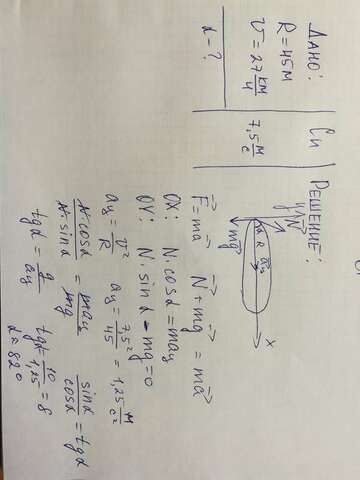 Дано:
R=45м
V=27 км/ч
α-?
Си
7,5 м/с
Решение:
y N
α R aу
mg
x
F=ma N+mg=ma
OX: N·cosα=maу
OY: N·sinα-mg=0
aу=V²/R aу=7,5²/45=1,25 м/с²
N·cosα/N·sinα = maу/mg sinα/cosα=tgα
tgα=g/aу tgα=10/1,25=8
α=82°